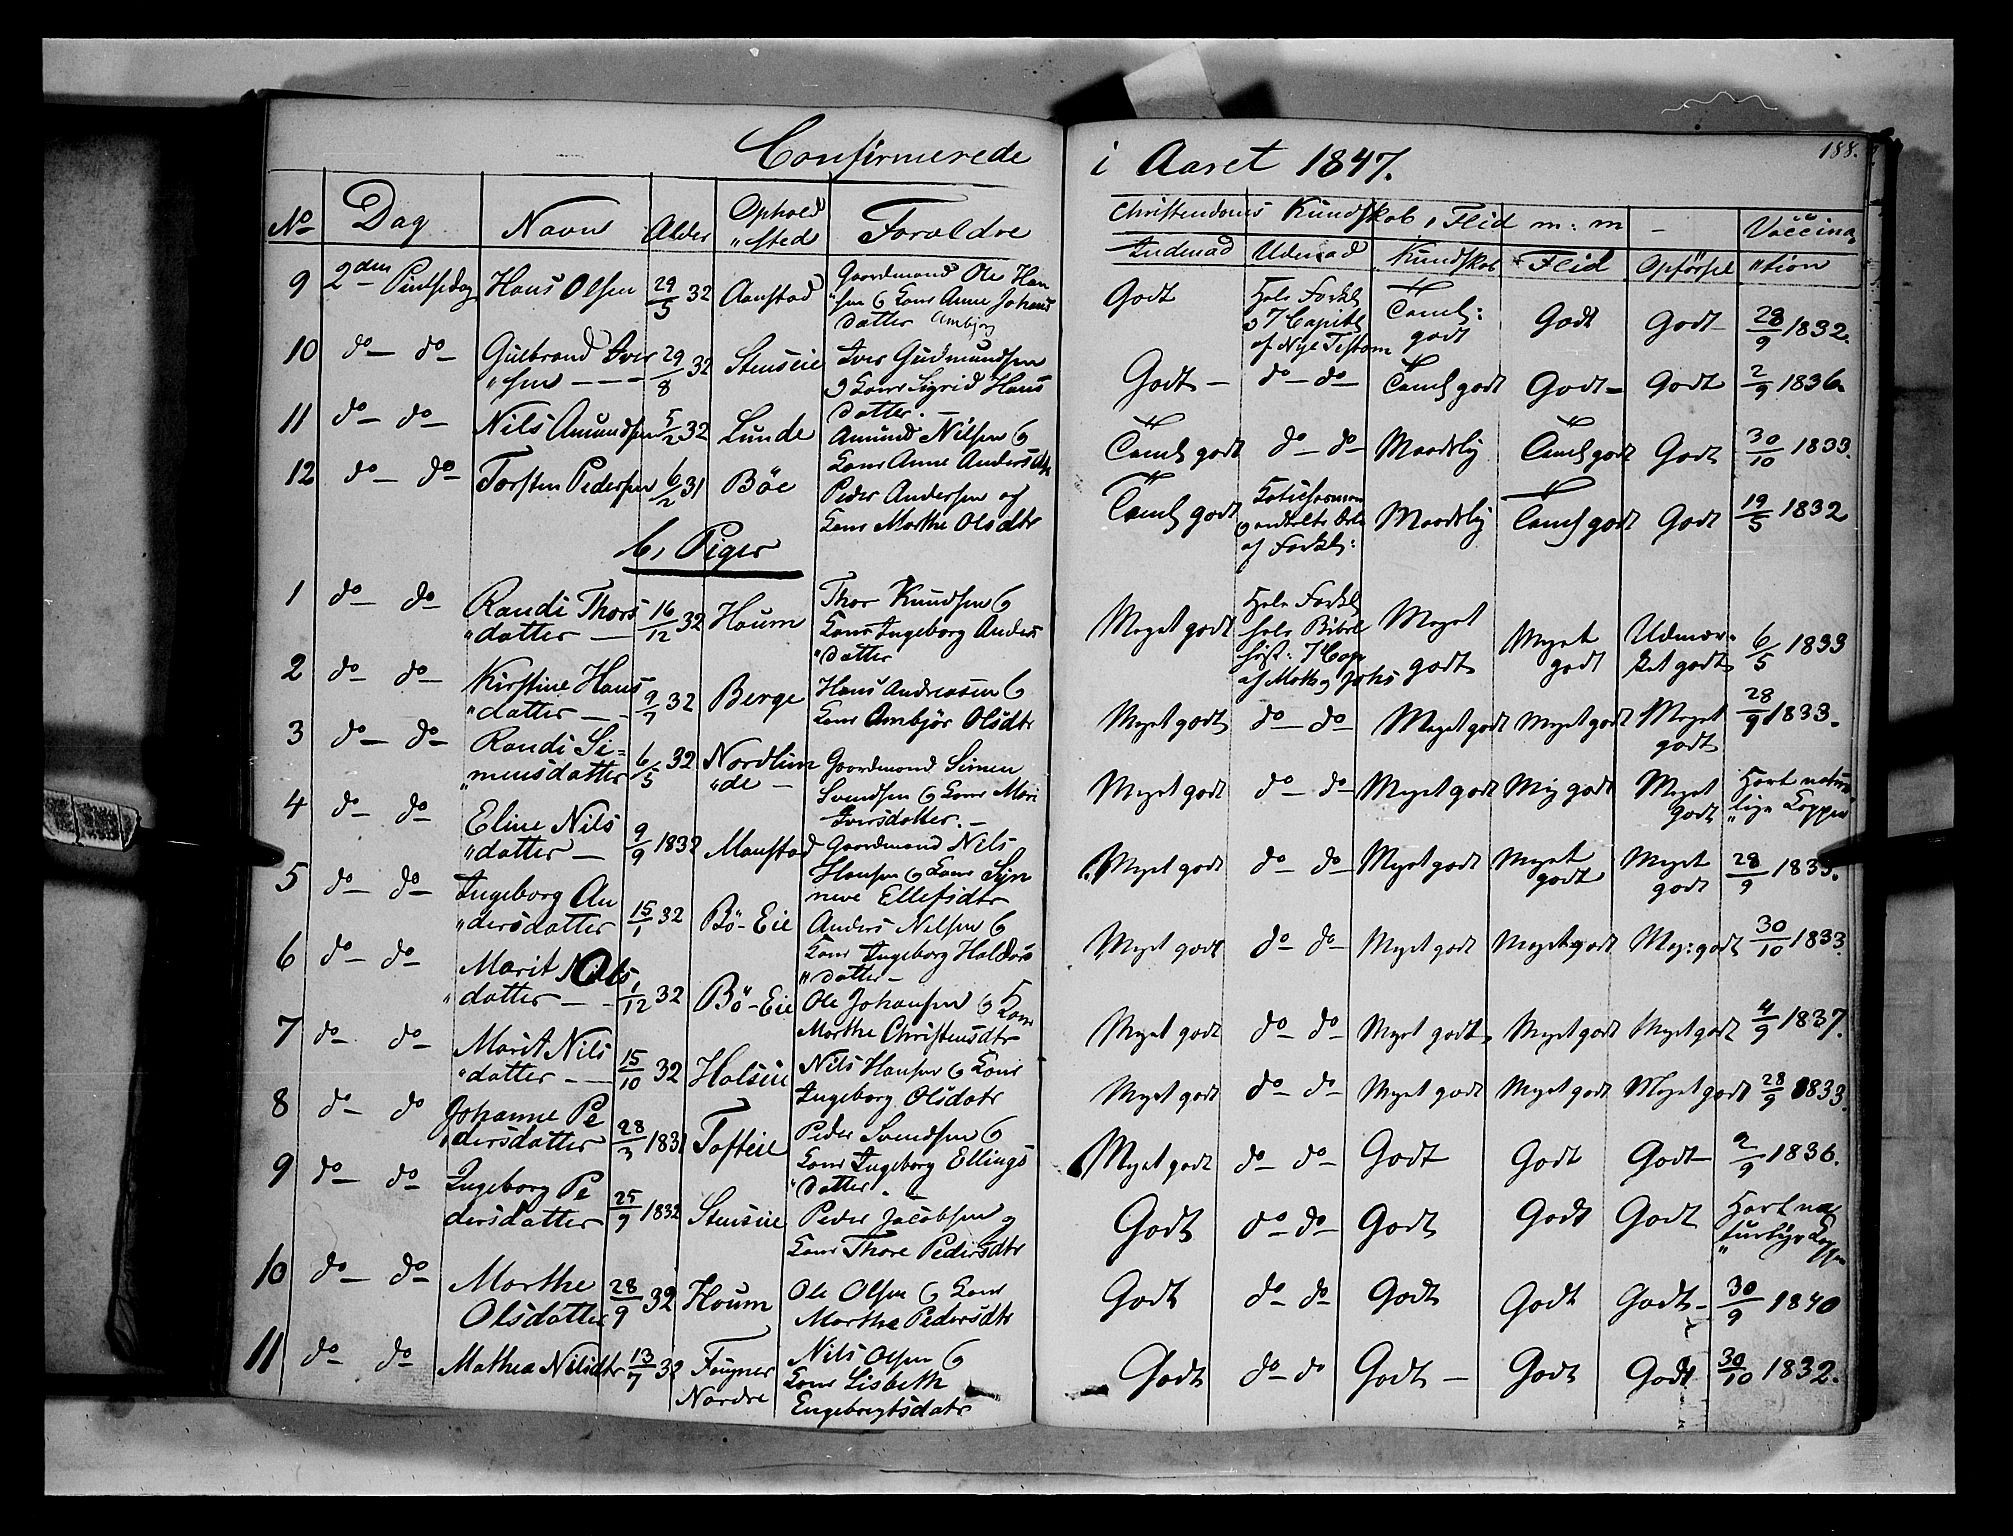 188.
Confirmerede i Aaret 1847.
No Dag Navn Alder Ophold "sted Foraldre Christendoms Kundskab, Flid m: m - Vaccina"
Indenad Udenad Kundskab Flid Opførsel "tion
9 2den Pintsedag Hans Olsen 29/5 32 Aanstad Gaardmand Ole Han
"sen & Kone Anne Johans
datter Ambjør
Godt Hele Forkl
& 7 Capitl
af Nye Testam
Taml:
godt
Godt Godt 28/9 1832.
10 do do Gulbrand Iver
"sen
29/8 32 Stenseie Iver Gudmundsen
& Kone Sigrid Hans
datter.
Godt do do Taml godt Godt Godt 2/9 1836.
11 do do Nils Amundsen 5/2 32 Lunde Amund Nilsen &
Kone Anne Anders
Taml godt do do Maadelig Taml godt Godt 30/10 1833.
12 do do Torsten Pedersen 6/2 31 Böe Peder Andersen og
Kone Marthe Olsdtr
Taml godt
af Forkl:
Maadelig Taml godt Godt 19/5 1832
b, Piger
1 do do Randi Thors
"datter
16/12 32 Houm Thor Knudsen &
Kone Ingeborg Anders
"datter
Meget godt Hele Forkl
hele Bibel
hist: 7 Cap
Meget
godt
Meget
godt
Udmær-
ket godt
6/5 1833
2 do do Kirstine Hans
"datter
9/7 32 Berge Hans Andreasen &
Kone Ambjör Olsdtr
Meget godt do do Meget godt Meget godt Meget
godt
28/9 1833.
3 do do Randi Si=
"mensdatter
6/5 32 Nordlim
"de
Gaardmand Simen
Svendsen & Kone Mari
Iversdatter.
Meget godt do do Meget godt Meg godt Meget
godt
Havt natur
"lige Kopper
4 do do Eline Nils
"datter
9/9 1832 Manstad Gaardmand Nils
Hansen & Kone Syn
neve Ellefsdtr
Meget godt do do Meget godt Meget
godt
Meget
godt
28/9 1833.
5 do do Ingeborg An
"dersdatter
15/1 32 Bö-Eie Anders Nilsen &
Kone Ingeborg Haldors
"datter
Meget godt do do Meget godt Meget godt Meg: godt 30/10 1833.
6 do do Marit Ols
"datter
1/12 32 Bö-Eie Ole Johansen & Kone
Marthe Christensdtr
Meget godt do do Meget godt Meget godt Meget godt 4/9 1837.
7 do do Marit Nils
"datter
15/10 32 Halseie Nils Hansen & Kone
Ingeborg Olsdatr
Meget godt do do Meget godt Meget godt Meget godt 28/9 1833.
8 do do Johanne Pe
"dersdatter
28/3 1831 Tofteie Peder Svendsen &
Kone Ingeborg Ellings
"datter.
Meget godt do do Godt Godt Godt 2/9 1836.
9 do do Ingeborg Pe
dersdatter
25/9 1832 Stenseie Peder Jacobsen &
Kone Thore Pedersdtr
Godt do do Godt Godt Godt Havt na
"turlige Kopper
10 do do Marthe
Olsdatter
28/9 32 Houm Ole Olsen & Kone
Marthe Pedersdtr
Godt do do Godt Godt Godt 30/9 1840
11 do do Mathea Nilsdtr 13/7 32 Fougner
Nordre
Nils Olsen &
Kone Lisbeth
Engebregtsdatr
Godt do do Godt Godt Godt 30/10 1832.